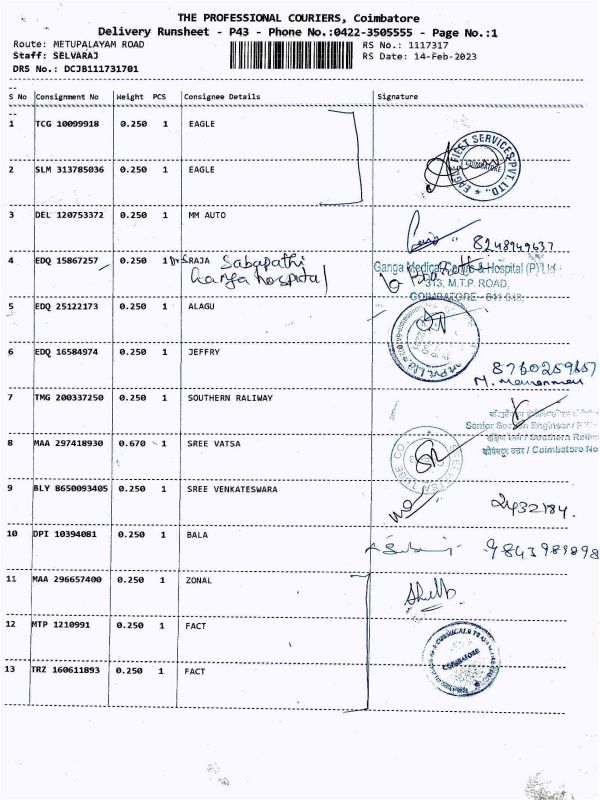 THE PROFESSIONAL COURIERS, Coimbatore
Delivery Runsheet - P43 - Phone No.:0422-3505555 - Page No.:1
Route: METUPALAYAM ROAD RS No.: 1117317
Staff: SELVARAJ RS Date: 14-Feb-2023
DRS No.: DCJB111731701
S No Consignment No Weight PCS Consignee Details Signature
1 TCG 10099918 0.250 1 EAGLE
EAGLE FLEET SERVICES PVT. LTD.,
COIMBATORE
2 SLM 313785036 0.250 1 EAGLE
3 DEL 120753372 0.250 1 MM AUTO
8248949637
4 EDQ 15867257 0.250 1 Dr.S RAJA Sabapathi
Ganga hospital
Ganga Medical Centre & Hospital (P) Ltd
313, M.T.P. ROAD,
COIMBATORE - 641 043
5 EDQ 25122173 0.250 1 ALAGU
6 EDQ 16584974 0.250 1 JEFFRY
7 TMG 200337250 0.250 1 SOUTHERN RALIWAY
Senior Section Engineer /
/ Southern Railway
/ Coimbatore No
8 MAA 297418930 0.670 1 SREE VATSA
9 BLY 8650093405 0.250 1 SREE VENKATESWARA
2432184.
10 DPI 10394081 0.250 1 BALA
9843989898
11 MAA 296657400 0.250 1 ZONAL
12 MTP 1210991 0.250 1 FACT
COIMBATORE
13 TRZ 160611893 0.250 1 FACT